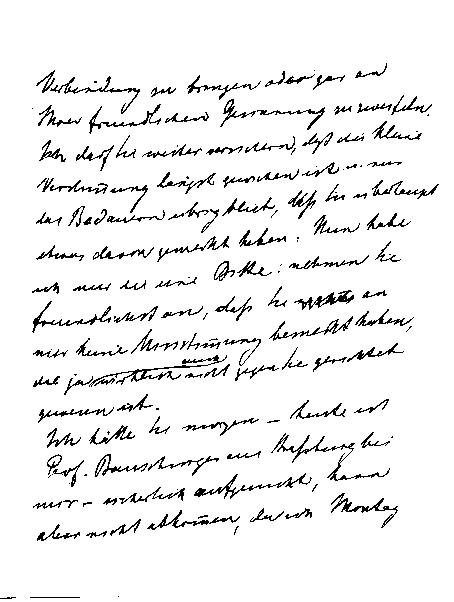 Verbindung zu bringen oder gar an
Ihrer freundlichen Gesinnung zu zweifeln.
Ich darf Sie weiter versichern, daß die kleine
Verstimmung längst gewichen ist u. nur
das Bedauern übrig blieb, daß Sie überhaupt
etwas davon gemerkt haben. Nun habe
ich nur die eine Bitte: nehmen Sie
freundlichst an, daß Sie an
mir keine Missstimmung bemerkt haben,
die ja auch nicht gegen Sie gerichtet
gewesen ist.
Ich hätte Sie morgen – heute ist
Prof. Bauschinger aus Straßburg bei
mir – sicherlich aufgesucht, kann
aber nicht abkom̄en, da ich Montag